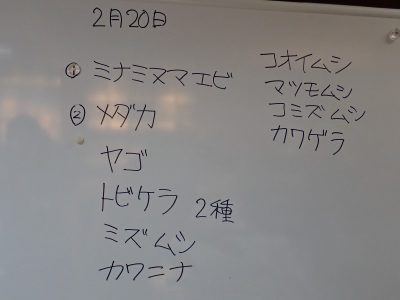 2月20日
① ミナミヌマエビ
② メダカ
ヤゴ
トビケラ 2種
ミズムシ
カワニナ
コオイムシ
マツモムシ
コミズムシ
カワゲラ